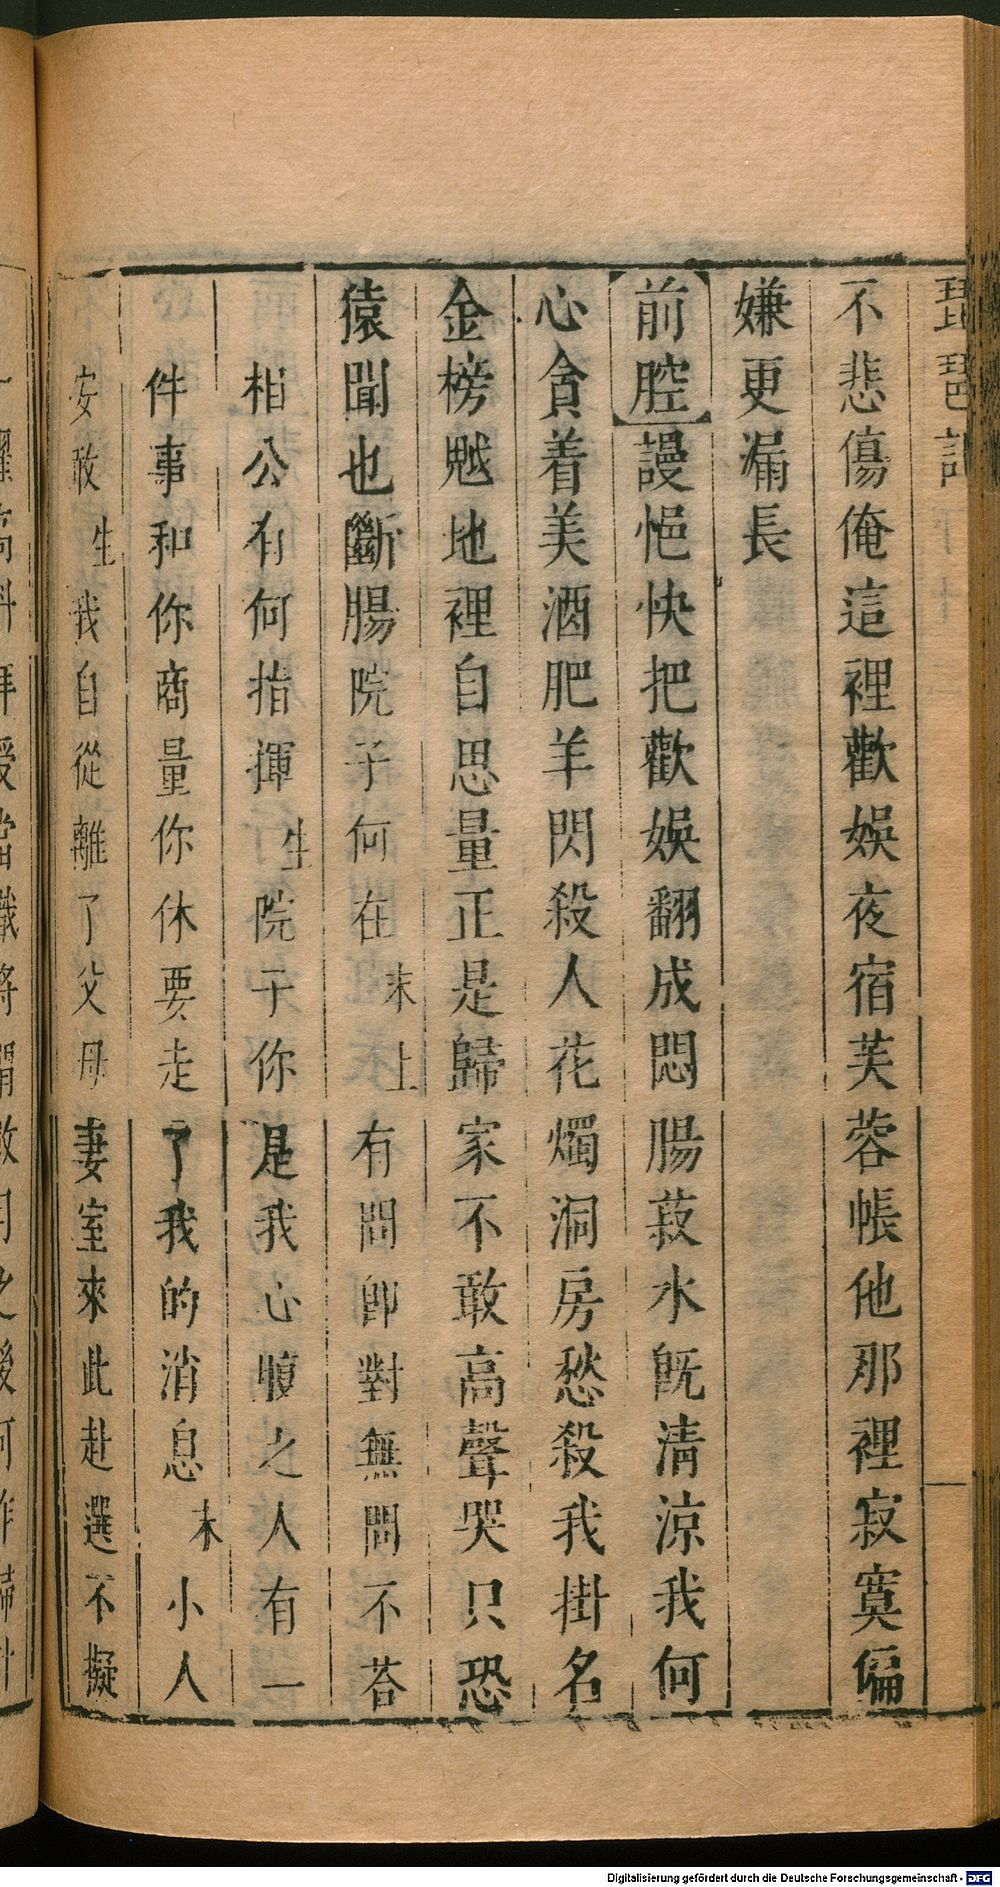 琵琶記
不悲傷俺這裡歡娛夜宿芙蓉帳他那裡寂寞偏
嫌更漏長
【前腔】謾悒怏把歡娛翻成悶腸菽水旣清涼我何
心貪着美酒肥羊閃殺人花燭洞房愁殺我掛名
金榜魆地裡自思量正是歸家不敢高聲哭只恐
猿聞也斷腸院子何在末上有問卽對無問不荅
相公有何指揮生院子你是我心腹之人有一
件事和你商量你休要走了我的消息末小人
安敢生我自從離了父母妻室來此赴選不擬
一擢高科拜授當職將謂數月之後可作歸計
Digitalisierung gefördert durch die Deutsche Forschungsgemeinschaft - DFG